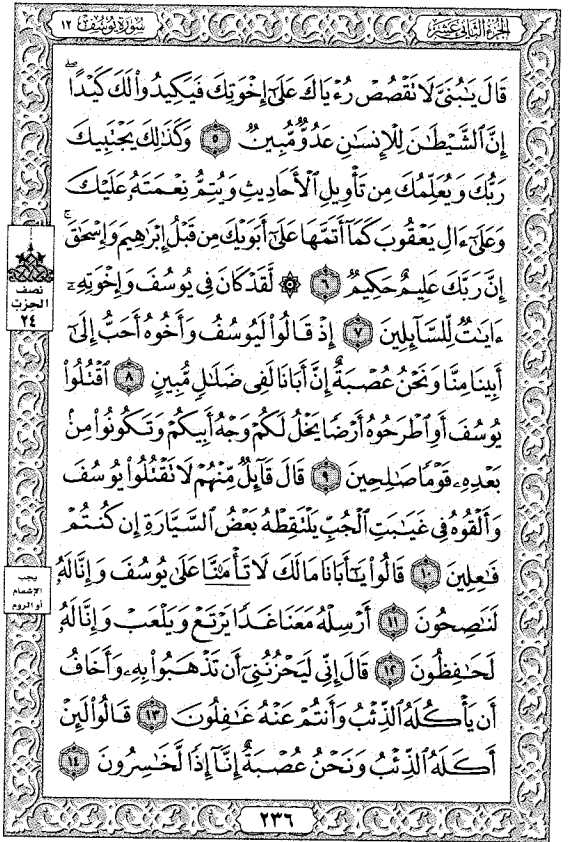 الجزء الثاني عشر
سورة يوسف ١٢
قَالَ يَٰبُنَىَّ لَا تَقْصُصْ رُءْيَاكَ عَلَىٰٓ إِخْوَتِكَ فَيَكِيدُوا۟ لَكَ كَيْدًا ۖ
إِنَّ ٱلشَّيْطَٰنَ لِلْإِنسَٰنِ عَدُوٌّ مُّبِينٌ ٥ وَكَذَٰلِكَ يَجْتَبِيكَ
رَبُّكَ وَيُعَلِّمُكَ مِن تَأْوِيلِ ٱلْأَحَادِيثِ وَيُتِمُّ نِعْمَتَهُۥ عَلَيْكَ
وَعَلَىٰٓ ءَالِ يَعْقُوبَ كَمَآ أَتَمَّهَا عَلَىٰٓ أَبَوَيْكَ مِن قَبْلُ إِبْرَٰهِيمَ وَإِسْحَٰقَ ۚ
إِنَّ رَبَّكَ عَلِيمٌ حَكِيمٌ ٦ ۞ لَّقَدْ كَانَ فِى يُوسُفَ وَإِخْوَتِهِۦٓ
ءَايَٰتٌ لِّلسَّآئِلِينَ ٧ إِذْ قَالُوا۟ لَيُوسُفُ وَأَخُوهُ أَحَبُّ إِلَىٰٓ
أَبِينَا مِنَّا وَنَحْنُ عُصْبَةٌ إِنَّ أَبَانَا لَفِى ضَلَٰلٍ مُّبِينٍ ٨ ٱقْتُلُوا۟
يُوسُفَ أَوِ ٱطْرَحُوهُ أَرْضًا يَخْلُ لَكُمْ وَجْهُ أَبِيكُمْ وَتَكُونُوا۟ مِنۢ
بَعْدِهِۦ قَوْمًا صَٰلِحِينَ ٩ قَالَ قَآئِلٌ مِّنْهُمْ لَا تَقْتُلُوا۟ يُوسُفَ
وَأَلْقُوهُ فِى غَيَٰبَتِ ٱلْجُبِّ يَلْتَقِطْهُ بَعْضُ ٱلسَّيَّارَةِ إِن كُنتُمْ
فَٰعِلِينَ ١٠ قَالُوا۟ يَٰٓأَبَانَا مَا لَكَ لَا تَأْمَ۫نَّا عَلَىٰ يُوسُفَ وَإِنَّا لَهُۥ
لَنَٰصِحُونَ ١١ أَرْسِلْهُ مَعَنَا غَدًا يَرْتَعْ وَيَلْعَبْ وَإِنَّا لَهُۥ
لَحَٰفِظُونَ ١٢ قَالَ إِنِّى لَيَحْزُنُنِىٓ أَن تَذْهَبُوا۟ بِهِۦ وَأَخَافُ
أَن يَأْكُلَهُ ٱلذِّئْبُ وَأَنتُمْ عَنْهُ غَٰفِلُونَ ١٣ قَالُوا۟ لَئِنْ
أَكَلَهُ ٱلذِّئْبُ وَنَحْنُ عُصْبَةٌ إِنَّآ إِذًا لَّخَٰسِرُونَ ١٤
نصف
الحزب
٢٤
يجب
الإشمام
أو الروم
٢٣٦